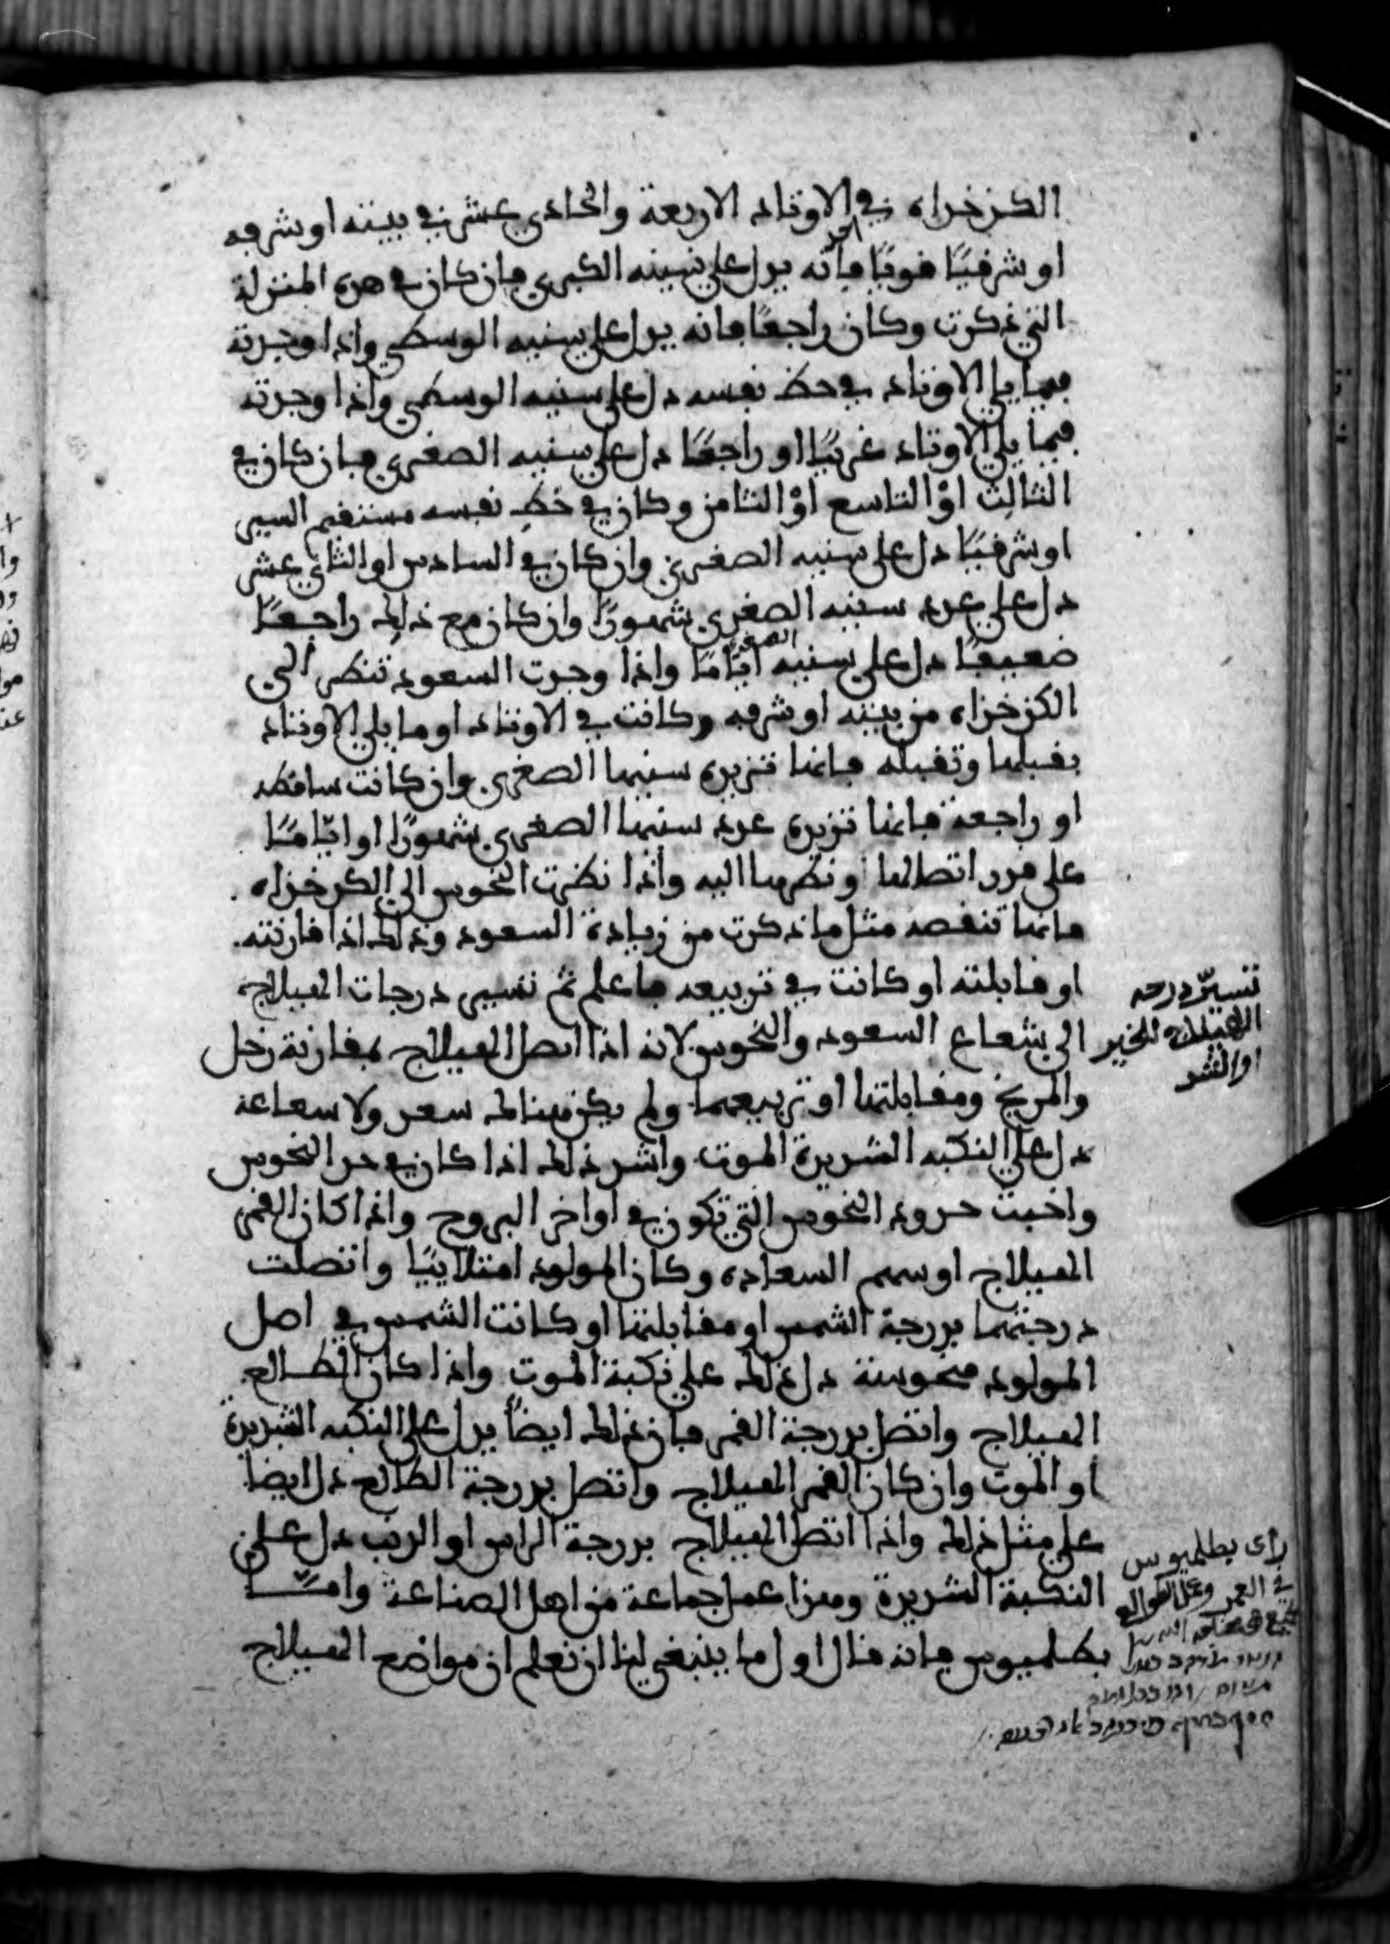 الكدخداه في الاوتاد الاربعة والحادي عشر في بيته او شرفه
او شرقيا قويا فانه يدل على سنينه الكبرى فان كان في هذه المنزلة
التي ذكرت وكان راجعًا فانه يدل على سنيه الوسطى واذا وجدته
فيما يلي الاوتاد في حظ نفسه دل على سنيه الوسطى واذا وجدته
فيما يلي الاوتاد غربيًا او راجعًا دل على سنيه الصغرى فان كان في
الثالث او التاسع او الثامن وكان في حظ نفسه مستقيم السير
او شرقيًا دل على سنيه الصغرى وان كان في السادس او الثاني عشر
دل على عدد سنيه الصغرى شهورًا وان كان مع ذلك راجعًا
ضعيفًا دل على سنيه الصغرى ايّامًا واذا وجدت السعود تنظر الى
الكدخداه من بيته او شرفه وكانت في الاوتاد او ما يلي الاوتاد
يقبلها وتقبله فانها تزيده سنيها الصغرى وان كانت ساقطه
او راجعة فانها تزيده عدد سنيها الصغرى شهورًا او ايّامًا
على قدر اتصالها ونظرها اليه واذا نظرت النحوس الى الكدخداه
فانها تنقصه مثل ما ذكرت من زيادة السعود وذلك اذا قارنته
او قابلته او كانت في تربيعه فاعلم ثم تسيير درجات الهيلاج
الى شعاع السعود والنحوس لانه اذا اتصل الهيلاج بمقارنة زحل
والمريخ ومقابلتها او تربيعهما ولم يكن هناك سعد ولا شعاعه
دل على النكبه الشديدة الموت واشد ذلك اذا كان في حد النحوس
واخبث حدود النحوس التي تكون في اواخر البروج واذا كان القمر
الهيلاج او سهم السعاده وكان المولود امتلاييًا واتصلت
درجتهما بدرجة الشمس او مقابلتها او كانت الشمس في اصل
المولود منحوسة دل ذلك على نكبة الموت واذا كان الطالع
الهيلاج واتصل بدرجة القمر فان ذلك ايضًا يدل على النكبه الشديدة
او الموت وان كان القمر الهيلاج واتصل بدرجة الطالع دل ايضا
على مثل ذلك واذا اتصل الهيلاج بدرجة الراس او الذنب دل على
النكبة الشديدة وهذا عمل جماعة من اهل الصناعة وامّا
بطلميوس فانه قال اول ما ينبغي لنا ان نعلم ان مواضع الهيلاج
تسيّر درجه
الهيلاج للخير
او الشر
راى بطلميوس
في العمر